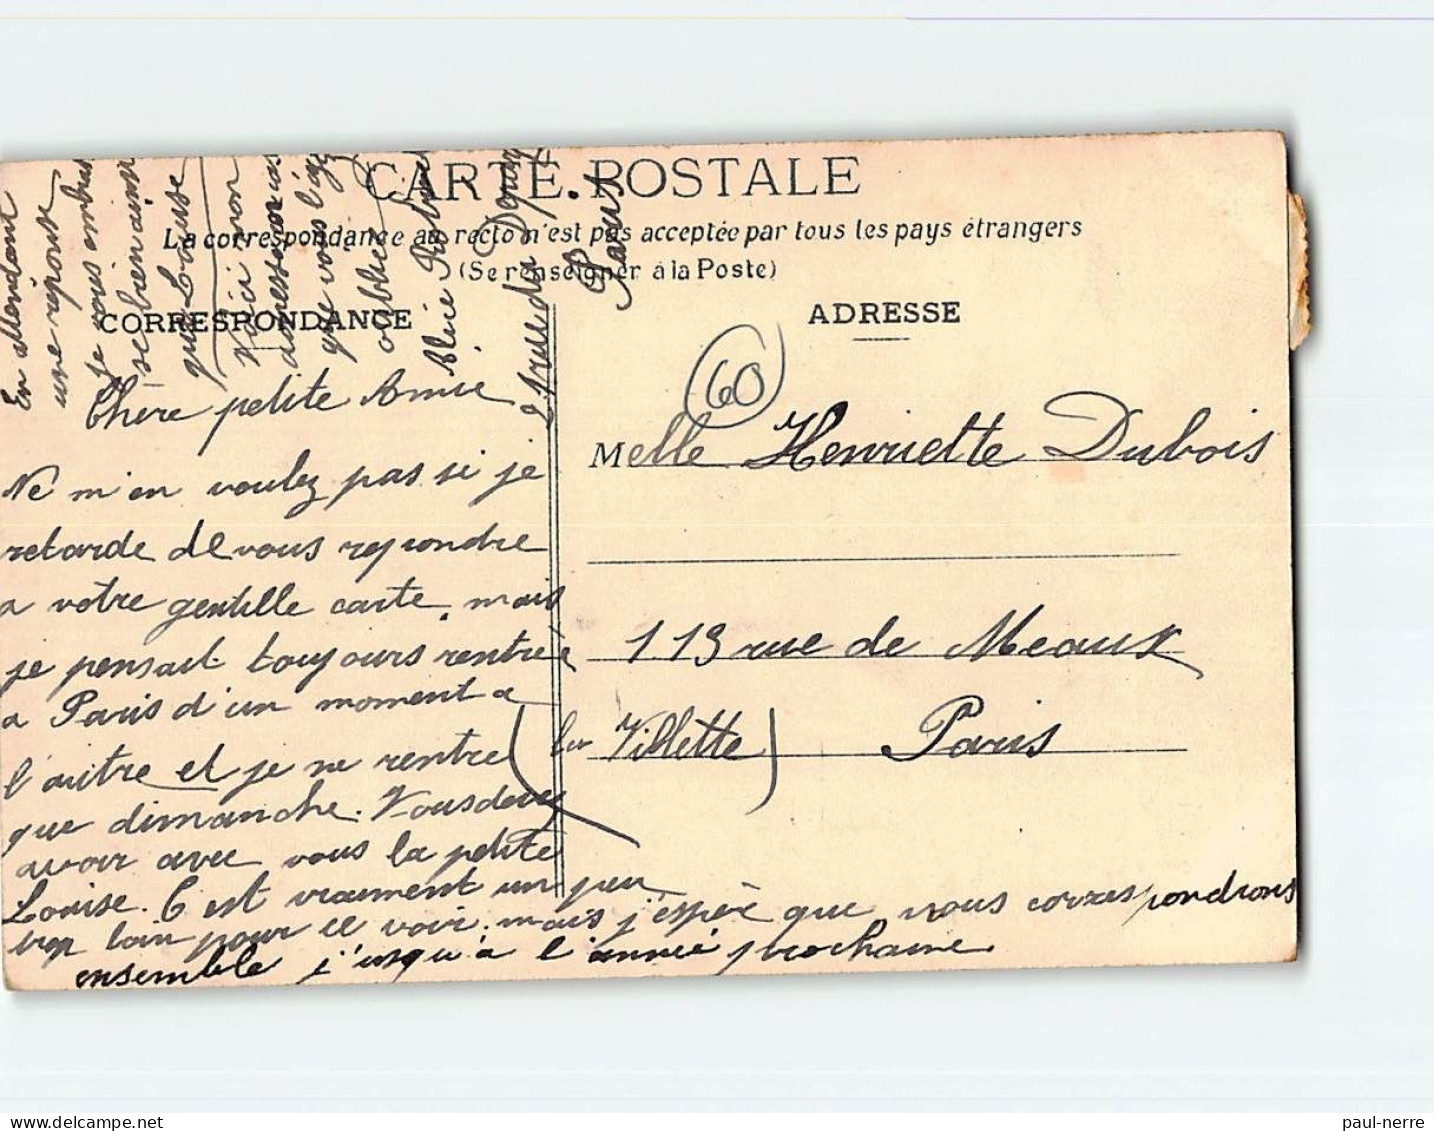 CARTE POSTALE
La correspondance au recto n'est pas acceptée par tous les pays étrangers
(Se renseigner à la Poste)
CORRESPONDANCE
ADRESSE
60
Chère petite Amie
Ne m'en voulez pas si je
retarde de vous repondre
a votre gentille carte, mais
je pensait toujours rentrée
a Paris d'un moment a
l'autre et je ne rentre
que dimanche. Vous devez
avoir avec vous la petite
Louise. C'est vraiment un peu
trop loin pour ce voir. mais j'espère que nous correspondrons
ensemble j'usqu'à l'année prochaine
En attendant
une réponse
je vous embrasse
bien ainsi
que Louise
Voici mon
adresse
que vous
Alice
2 rue du
Paris
Melle Henriette Dubois
113 rue de Meaux
(La Villette) Paris
paul-nerre